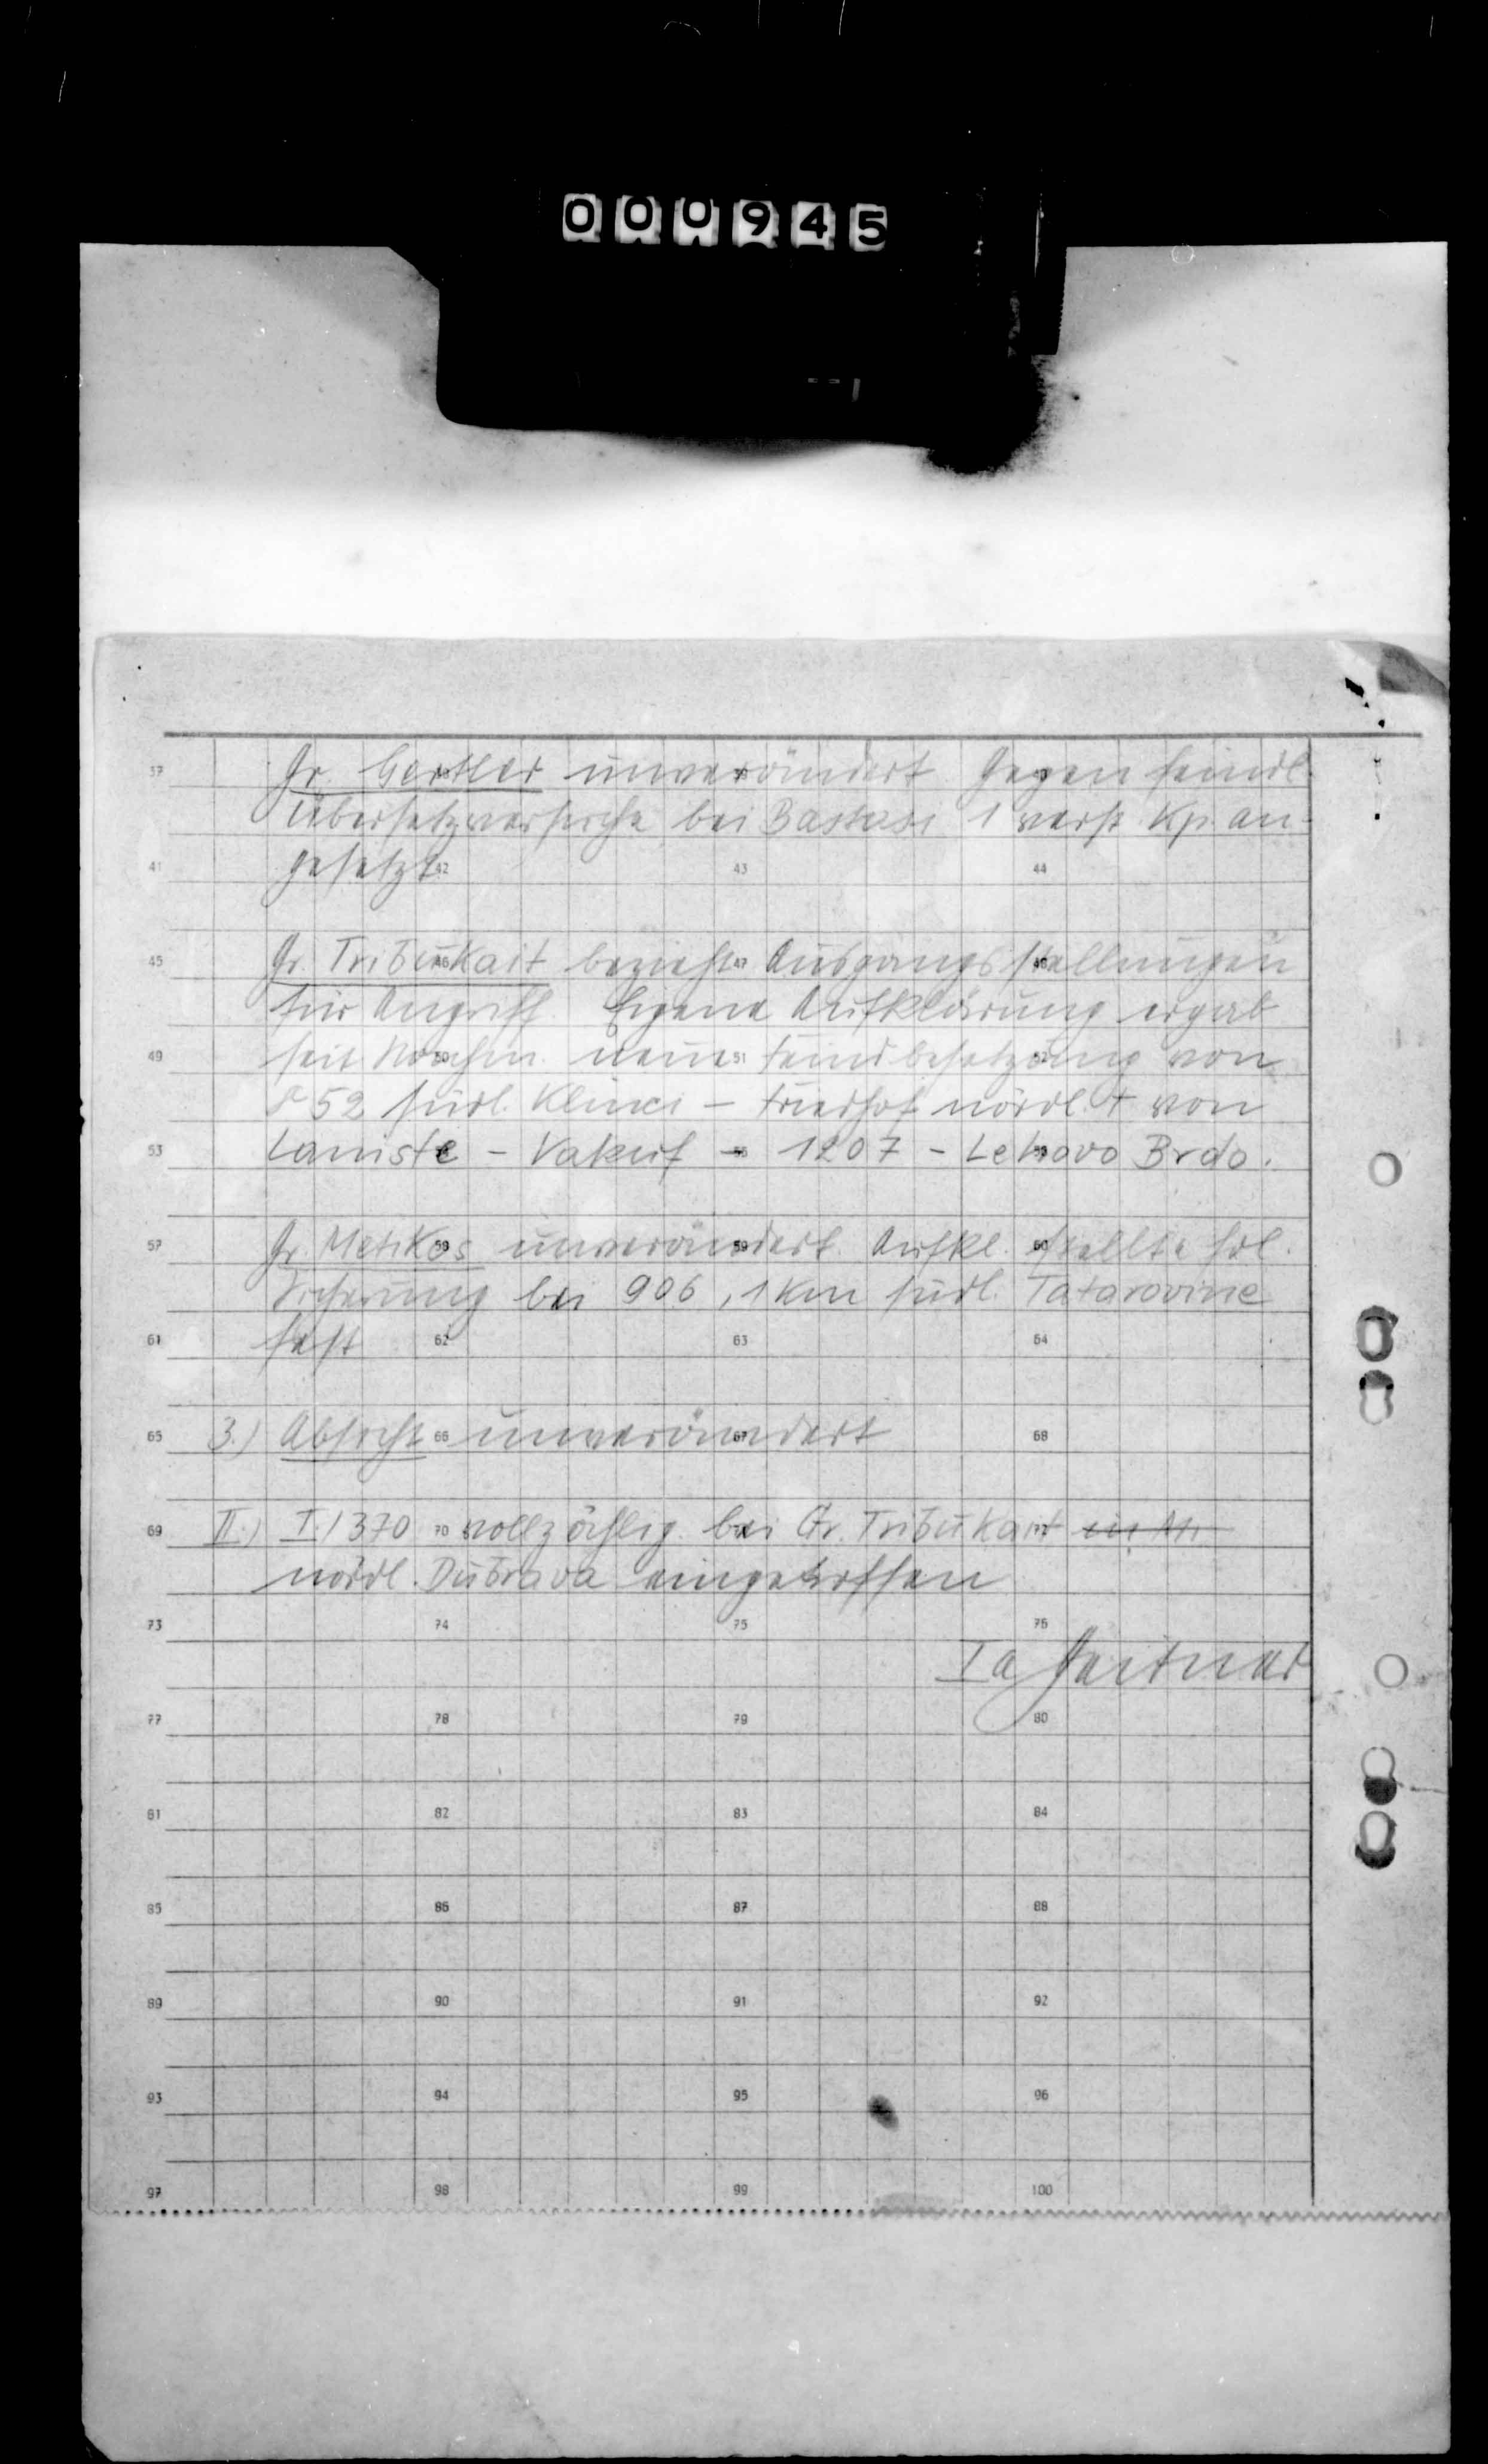 000945
37 Gr. Gertler unverändert. Gegen feindl.
Übersetzversuche bei Bastasi 1 verst. Kp. an-
gesetzt.
41 42 43 44
45 46 47 48
Gr. Tribukait bezieht Ausgangsstellungen
für Angriff. Eigene Aufklärung ergab
49 50 51 52
seit Nachm. neue Feindbesetzung von
52 südl. Klinci – Friedhof nördl. t von
53
Laniste – Vakuf – 1207 – Lehovo Brdo.
57 58 59 60
Gr. Metikos unverändert. Aufkl. stellte fdl.
Sicherung bei 906, 1 km südl. Tatarovine
fest
61 62 63 64
65 66 67 68
3.) Absicht unverändert
69 70
II.) I./370 vollzählig bei Gr. Tribukait
nördl. Dubrava eingetroffen
73 74 75 76
Ia
77 78 79 80
81 82 83 84
85 86 87 88
89 90 91 92
93 94 95 96
97 98 99 100